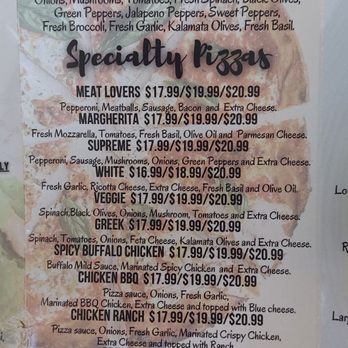 Onions, Mushrooms, Tomatoes, Fresh Spinach, Black Olives,
Green Peppers, Jalapeno Peppers, Sweet Peppers,
Fresh Broccoli, Fresh Garlic, Kalamata Olives, Fresh Basil.
Specialty Pizzas
MEAT LOVERS $17.99/$19.99/$20.99
Pepperoni, Meatballs, Sausage, Bacon and Extra Cheese.
MARGHERITA $17.99/$19.99/$20.99
Fresh Mozzarella, Tomatoes, Fresh Basil, Olive Oil and Parmesan Cheese.
SUPREME $17.99/$19.99/$20.99
Pepperoni, Sausage, Mushrooms, Onions, Green Peppers and Extra Cheese.
WHITE $16.99/$18.99/$20.99
Fresh Garlic, Ricotta Cheese, Extra Cheese, Fresh Basil and Olive Oil.
VEGGIE $17.99/$19.99/$20.99
Spinach,Black Olives, Onions, Mushroom, Tomatoes and Extra Cheese.
GREEK $17.99/$19.99/$20.99
Spinach, Tomatoes, Onions, Feta Cheese, Kalamata Olives and Extra Cheese.
SPICY BUFFALO CHICKEN $17.99/$19.99/$20.99
Buffalo Mild Sauce, Marinated Spicy Chicken and Extra Cheese.
CHICKEN BBQ $17.99/$19.99/$20.99
Pizza sauce, Onions, Fresh Garlic,
Marinated BBQ Chicken, Extra Cheese and topped with Blue cheese.
CHICKEN RANCH $17.99/$19.99/$20.99
Pizza sauce, Onions, Fresh Garlic, Marinated Crispy Chicken,
Extra Cheese and topped with Ranch